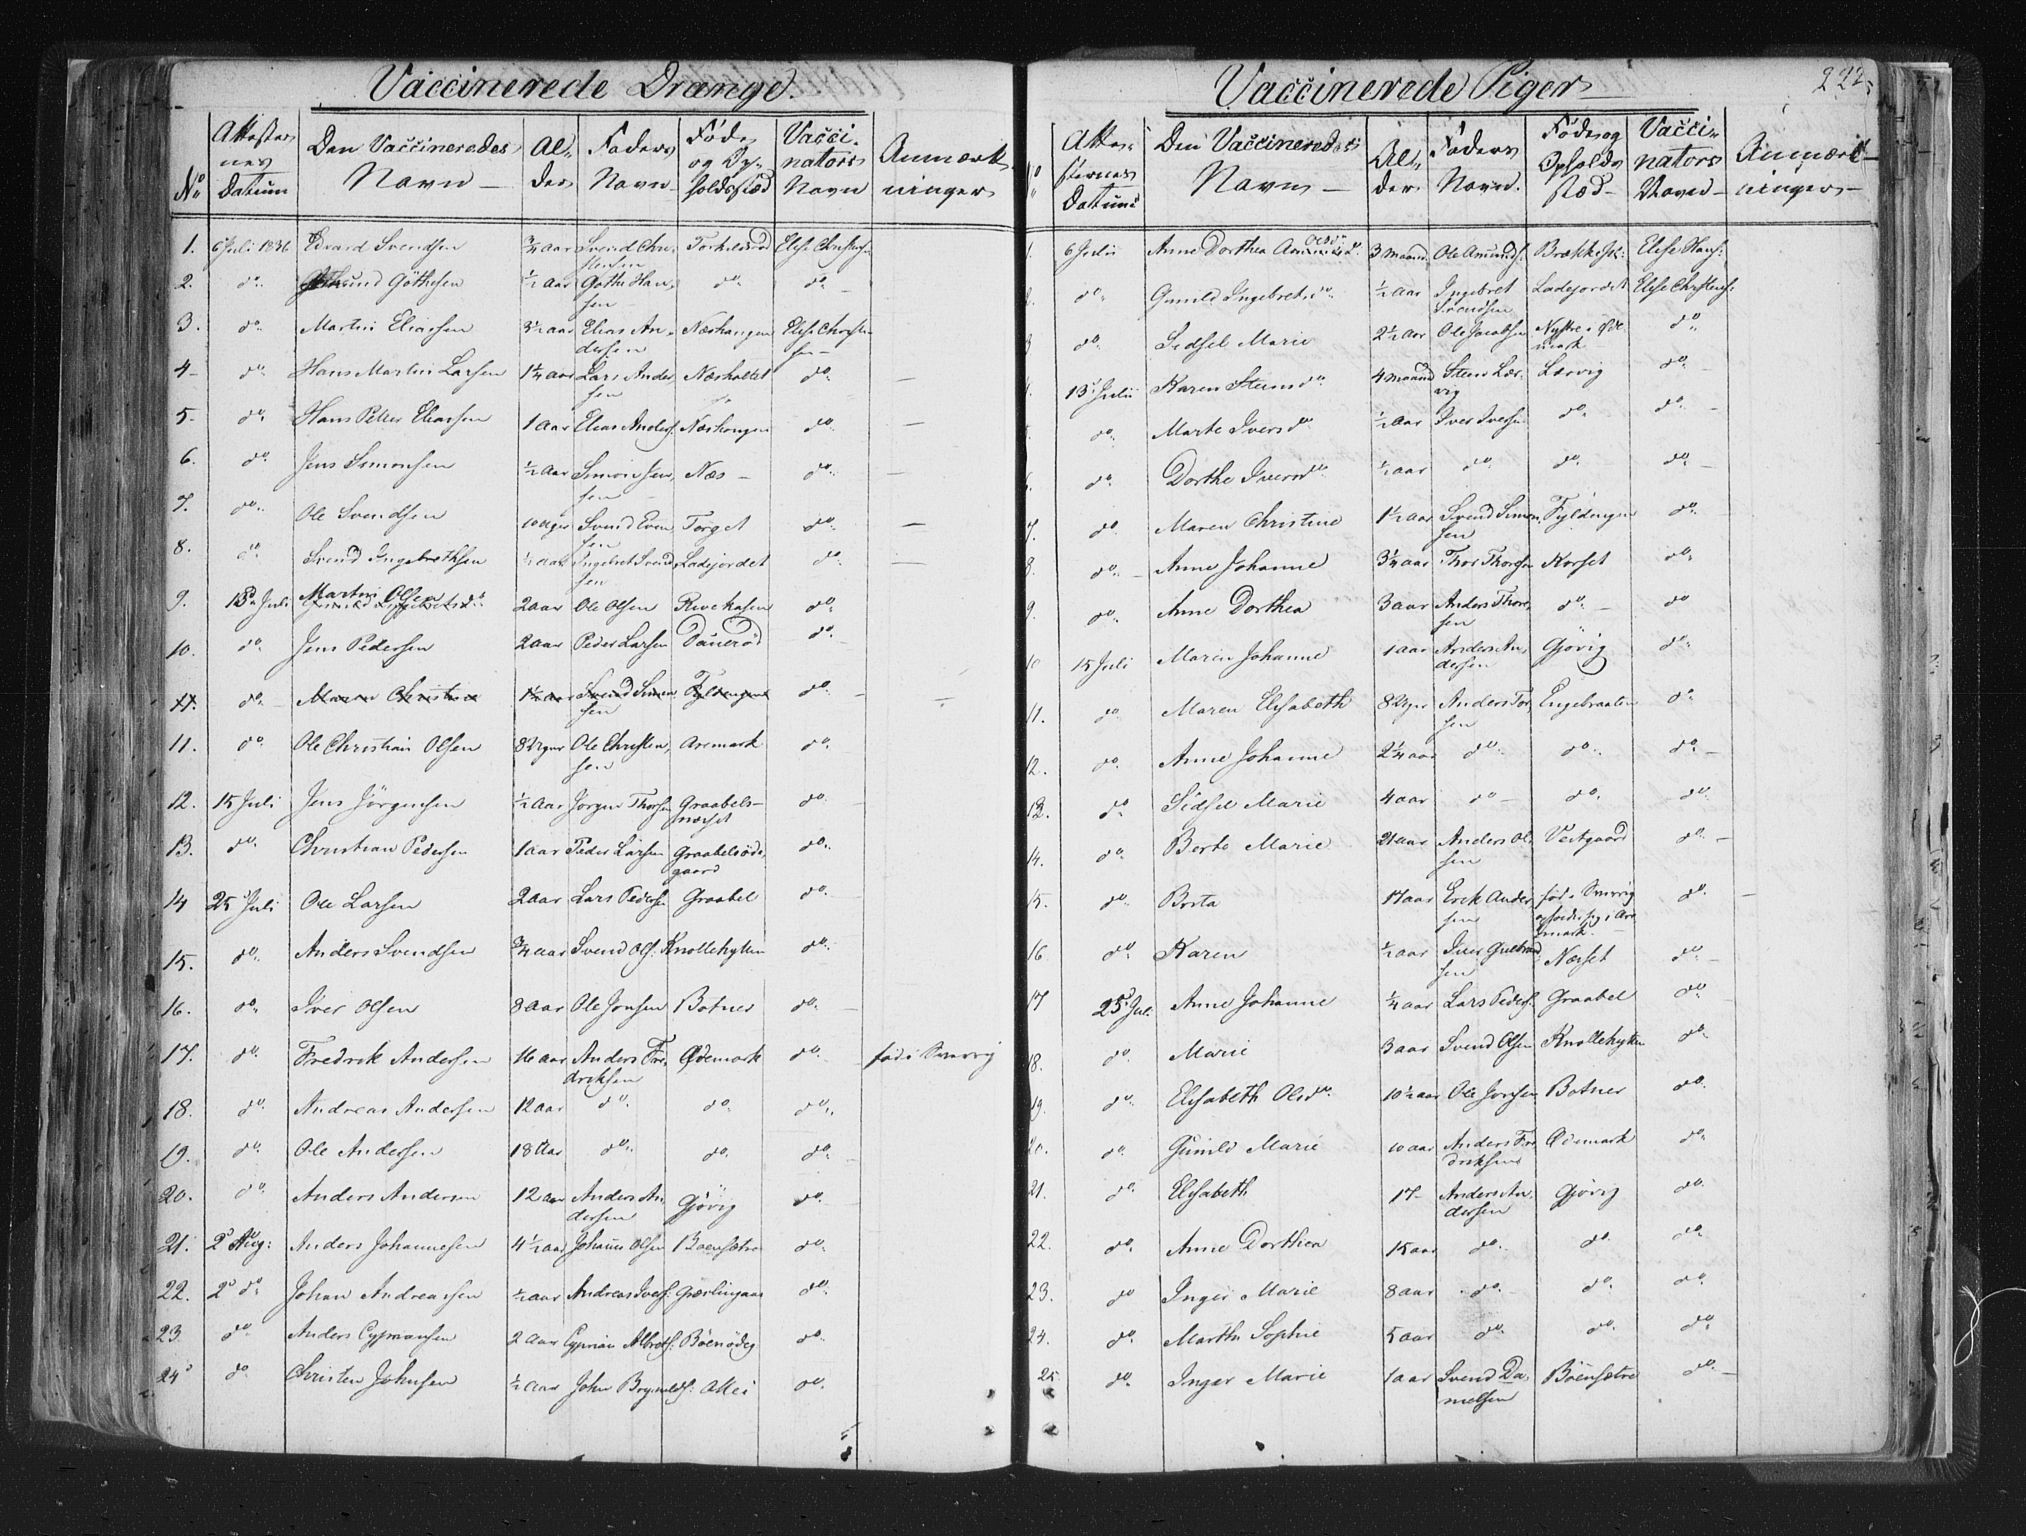 Vaccinerede Drænge.
No | Attester nes Datum | Den Vaccineredes Navn | Al- der | Faders Navn | Føde og Op- holdssted | Vacci- nators Navn | Anmærk- ninger
1. 6 Juli 1836 Edvard Svendsen 3/4 aar Svend Chri- stensen Torkildsrød Elise Christens:
2. do Göthesen 1/2 aar Gothe Han- sen do do
3. do Martin Eliassen 3 1/2 aar Elias An- dersen Næshangen Elise Christen- sen
4 do Hans Martin Larsen 1 1/4 aar Lars Ander sen Næsholtet do
5. do Hans Petter Eliassen 1 aar Elias Anders: Næshangen do
6. do Jens Simonsen 1/2 aar Simon Jen- sen Næs do
7. do Ole Svendsen 10 uger Svend Even sen Torget do
8. do Svend Ingebrethsen 1/2 aar Ingebret Svend sen Ladejordet do
9. 13 Juli Martin Olsen 2 aar Ole Olsen do
10. do Jens Pedersen 2 aar Peder Larsen Danerød do
11. do Maren Christine 1 1/2 aar Svend Simon sen Fyldengen do
11. do Ole Christian Olsen 8 Uger Ole Christen- sen Aremark do
12. 15 Juli Jens Jörgensen 1/2 aar Jörgen Thorsen Graabels- næset do
13. do Christian Pedersen 1 aar Peder Larsen Graabelsöde- gaard do
14 25 Juli Ole Larsen 2 aar Lars Peders Graabel do
15. do Anders Svendsen 3/4 aar Svend Ols: Knollehytten do
16. do Iver Olsen 8 aar Ole Jonsen Botner do
17. do Fredrik Andersen 16 aar Anders Fre- driksen Ødemark do fød i Sverrig
18. do Andreas Andersen 12 aar do do do
19. do Ole Andersen 18 aar do do do
20. do Anders Andersen 12 aar Anders An- dersen Gjövig do
21. 2 Aug: Anders Johannesen 4 1/2 aar Johannes Olsen Boensætre do
22. 2 do Johan Andreassen 1/2 aar Andreas Ivers: do
23 do Anders Cypriansen 2 aar Cyprian Albrets: Böenödeg do
24 do Christen Johnsen 1/2 aar John do
Vaccinerede Piger
222
No | Atte- sternes Datum | Den Vaccineredes Navn | Al- der | Faders Navn. | Føde og Opholds sted | Vacci- nators Navn | Anmærk- ninger
1. 6 Julii Anne Dorthea Olsdr 3 maaned Ole Amunds: Elise Hans:
2. do Gunild Ingebretsdr 1/2 aar Ingebret Svendsen Ladejordet Elise Christens:
3 do Sidsel Marie 2 1/2 aar Ole Jacobsen do
13 Julii Karen Steensdr 4 maaned Steen Lær- vig Lærvig do
do Marte Iversdr 1/2 aar Iver Iversen do do
6. do Dorthe Iversdr 1/2 aar do do do
7. do Maren Christine 1 1/2 aar Svend Simon sen Fyldengen do
8. do Anne Johanne 3 1/4 aar Thor Thorsen Korset do
9. do Anne Dorthea 3 aar Anders Thor- sen do do
10 15 Juli Maren Johanne 1 aar Anders An- dersen Gjövig do
11. do Maren Elisabeth 8 Uger Anders Tor- sen Engebraaten do
12. do Anne Johanne 2 1/4 aar do do do
13. do Sidsel Marie 4 aar do do do
14. do Berte Marie 21 aar Anders Ol- sen Vestgaard do
15. do Berta 17 aar Erik Ander sen fød i Sverrig opholder sig i Are mark do
16. do Karen 1/2 aar Iver Gulbrand sen Næset do
17 25 Jul. Anne Johanne 1/4 aar Lars Peders: Graabel do
18. do Marie 3 aar Svend Olsen Knollehytten do
19. do Elisabeth Olsdr 10 1/2 aar Ole Jonsen Botner do
20. do Gunild Marie 10 aar Anders Fre driksen Ødemark do
21. do Elisabeth 17 Anders An- dersen Gjövig do
22. do Anne Dorthea 15 aar do do do
23. do Inger Marie 8 aar do do do
24. do Marthe Sophie 5 aar do do do
25. do Inger Marie 1 aar Svend Da- nielsen Böensætre do